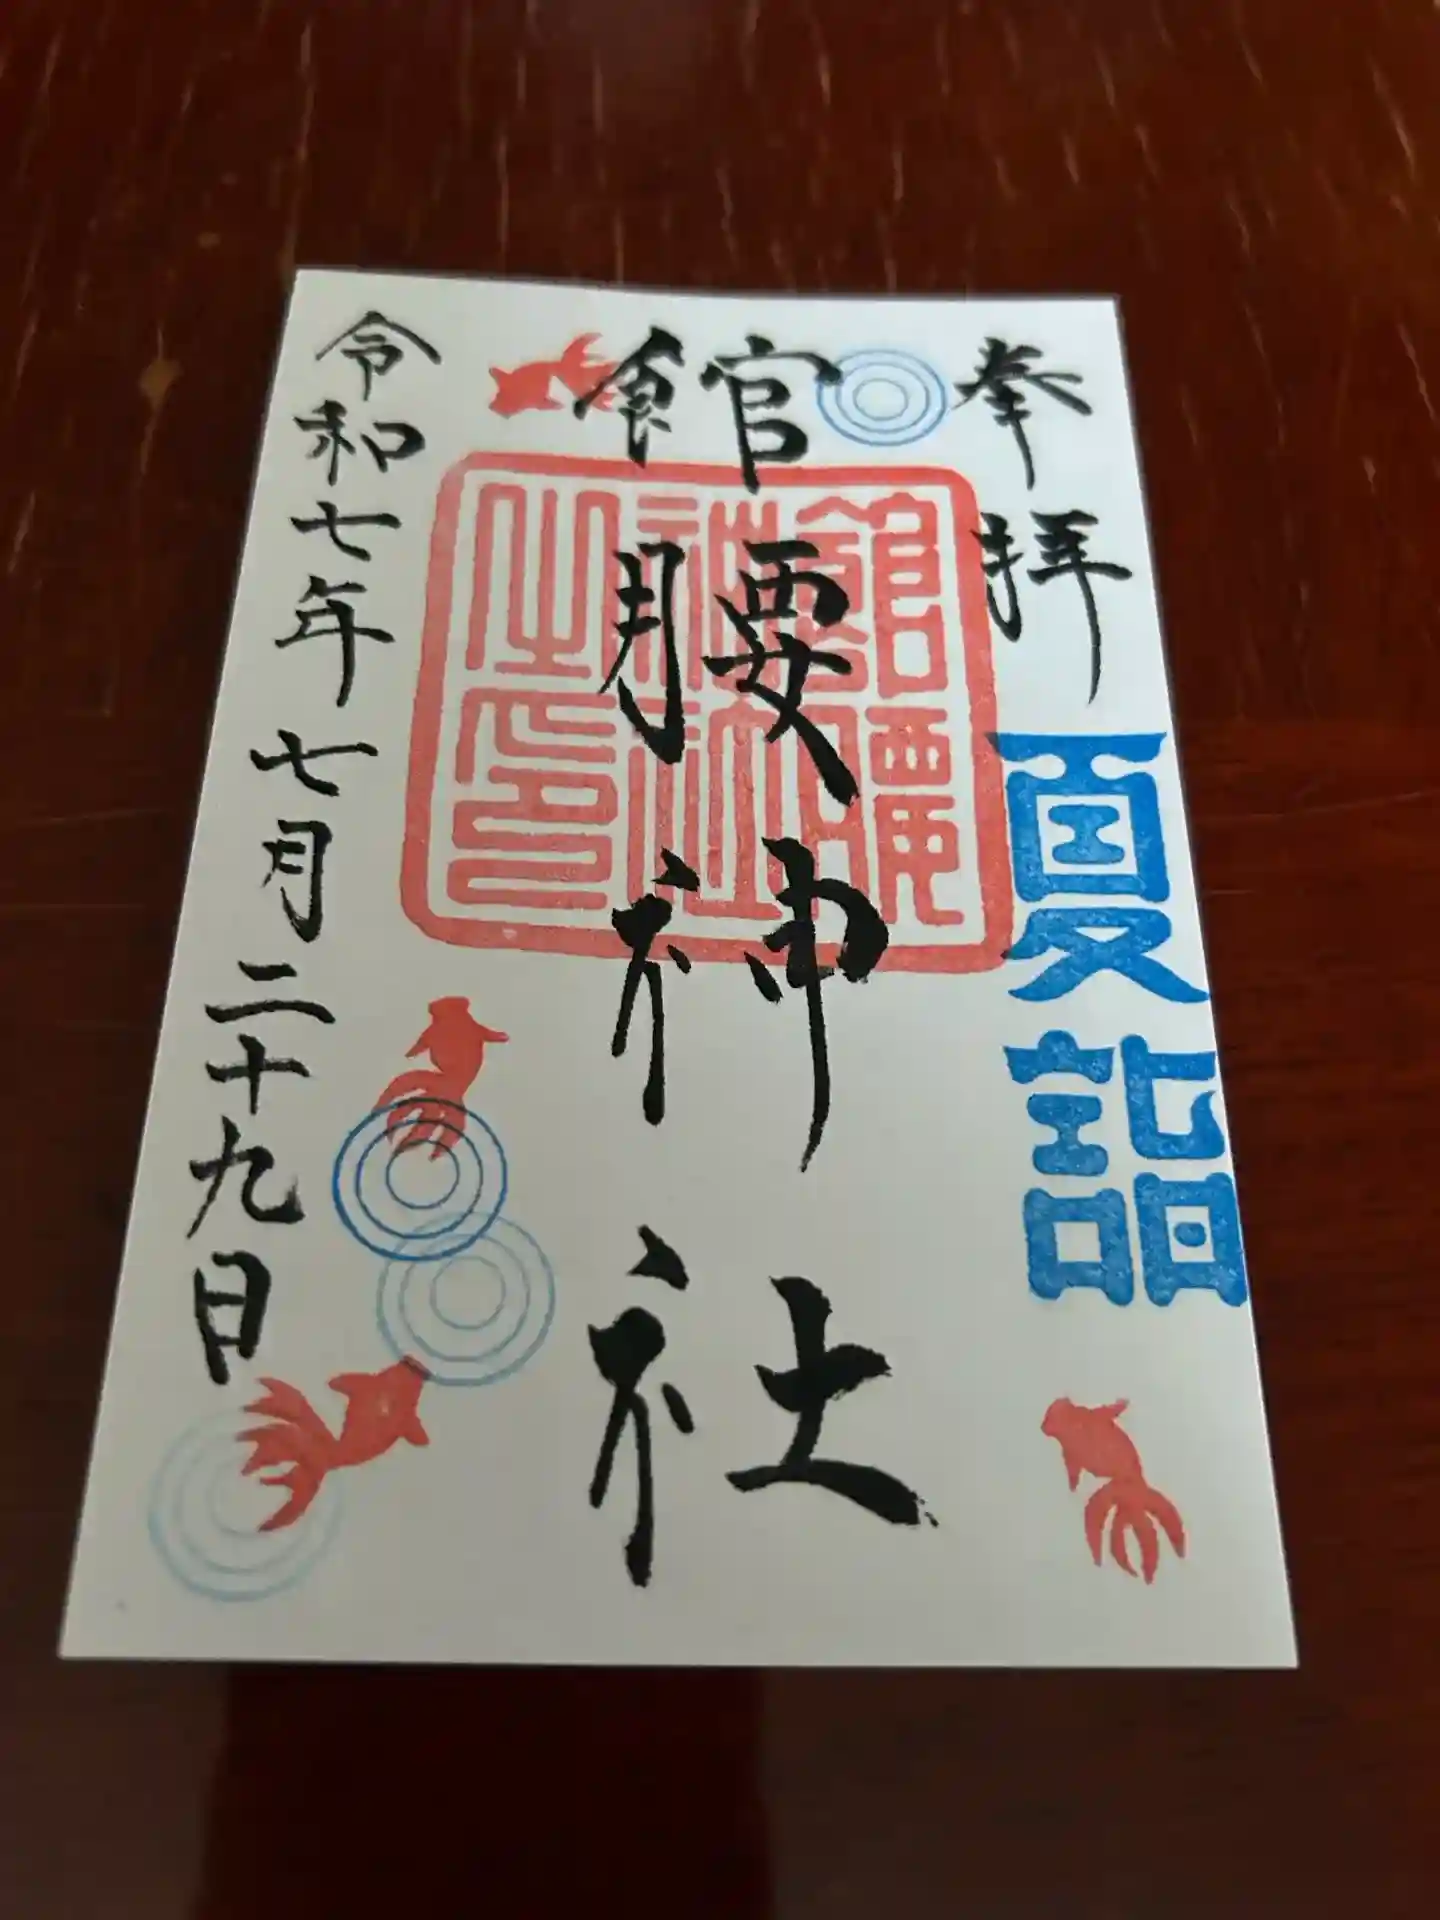 奉拝
夏詣
館腰神社
館腰神社之印
令和七年七月二十九日